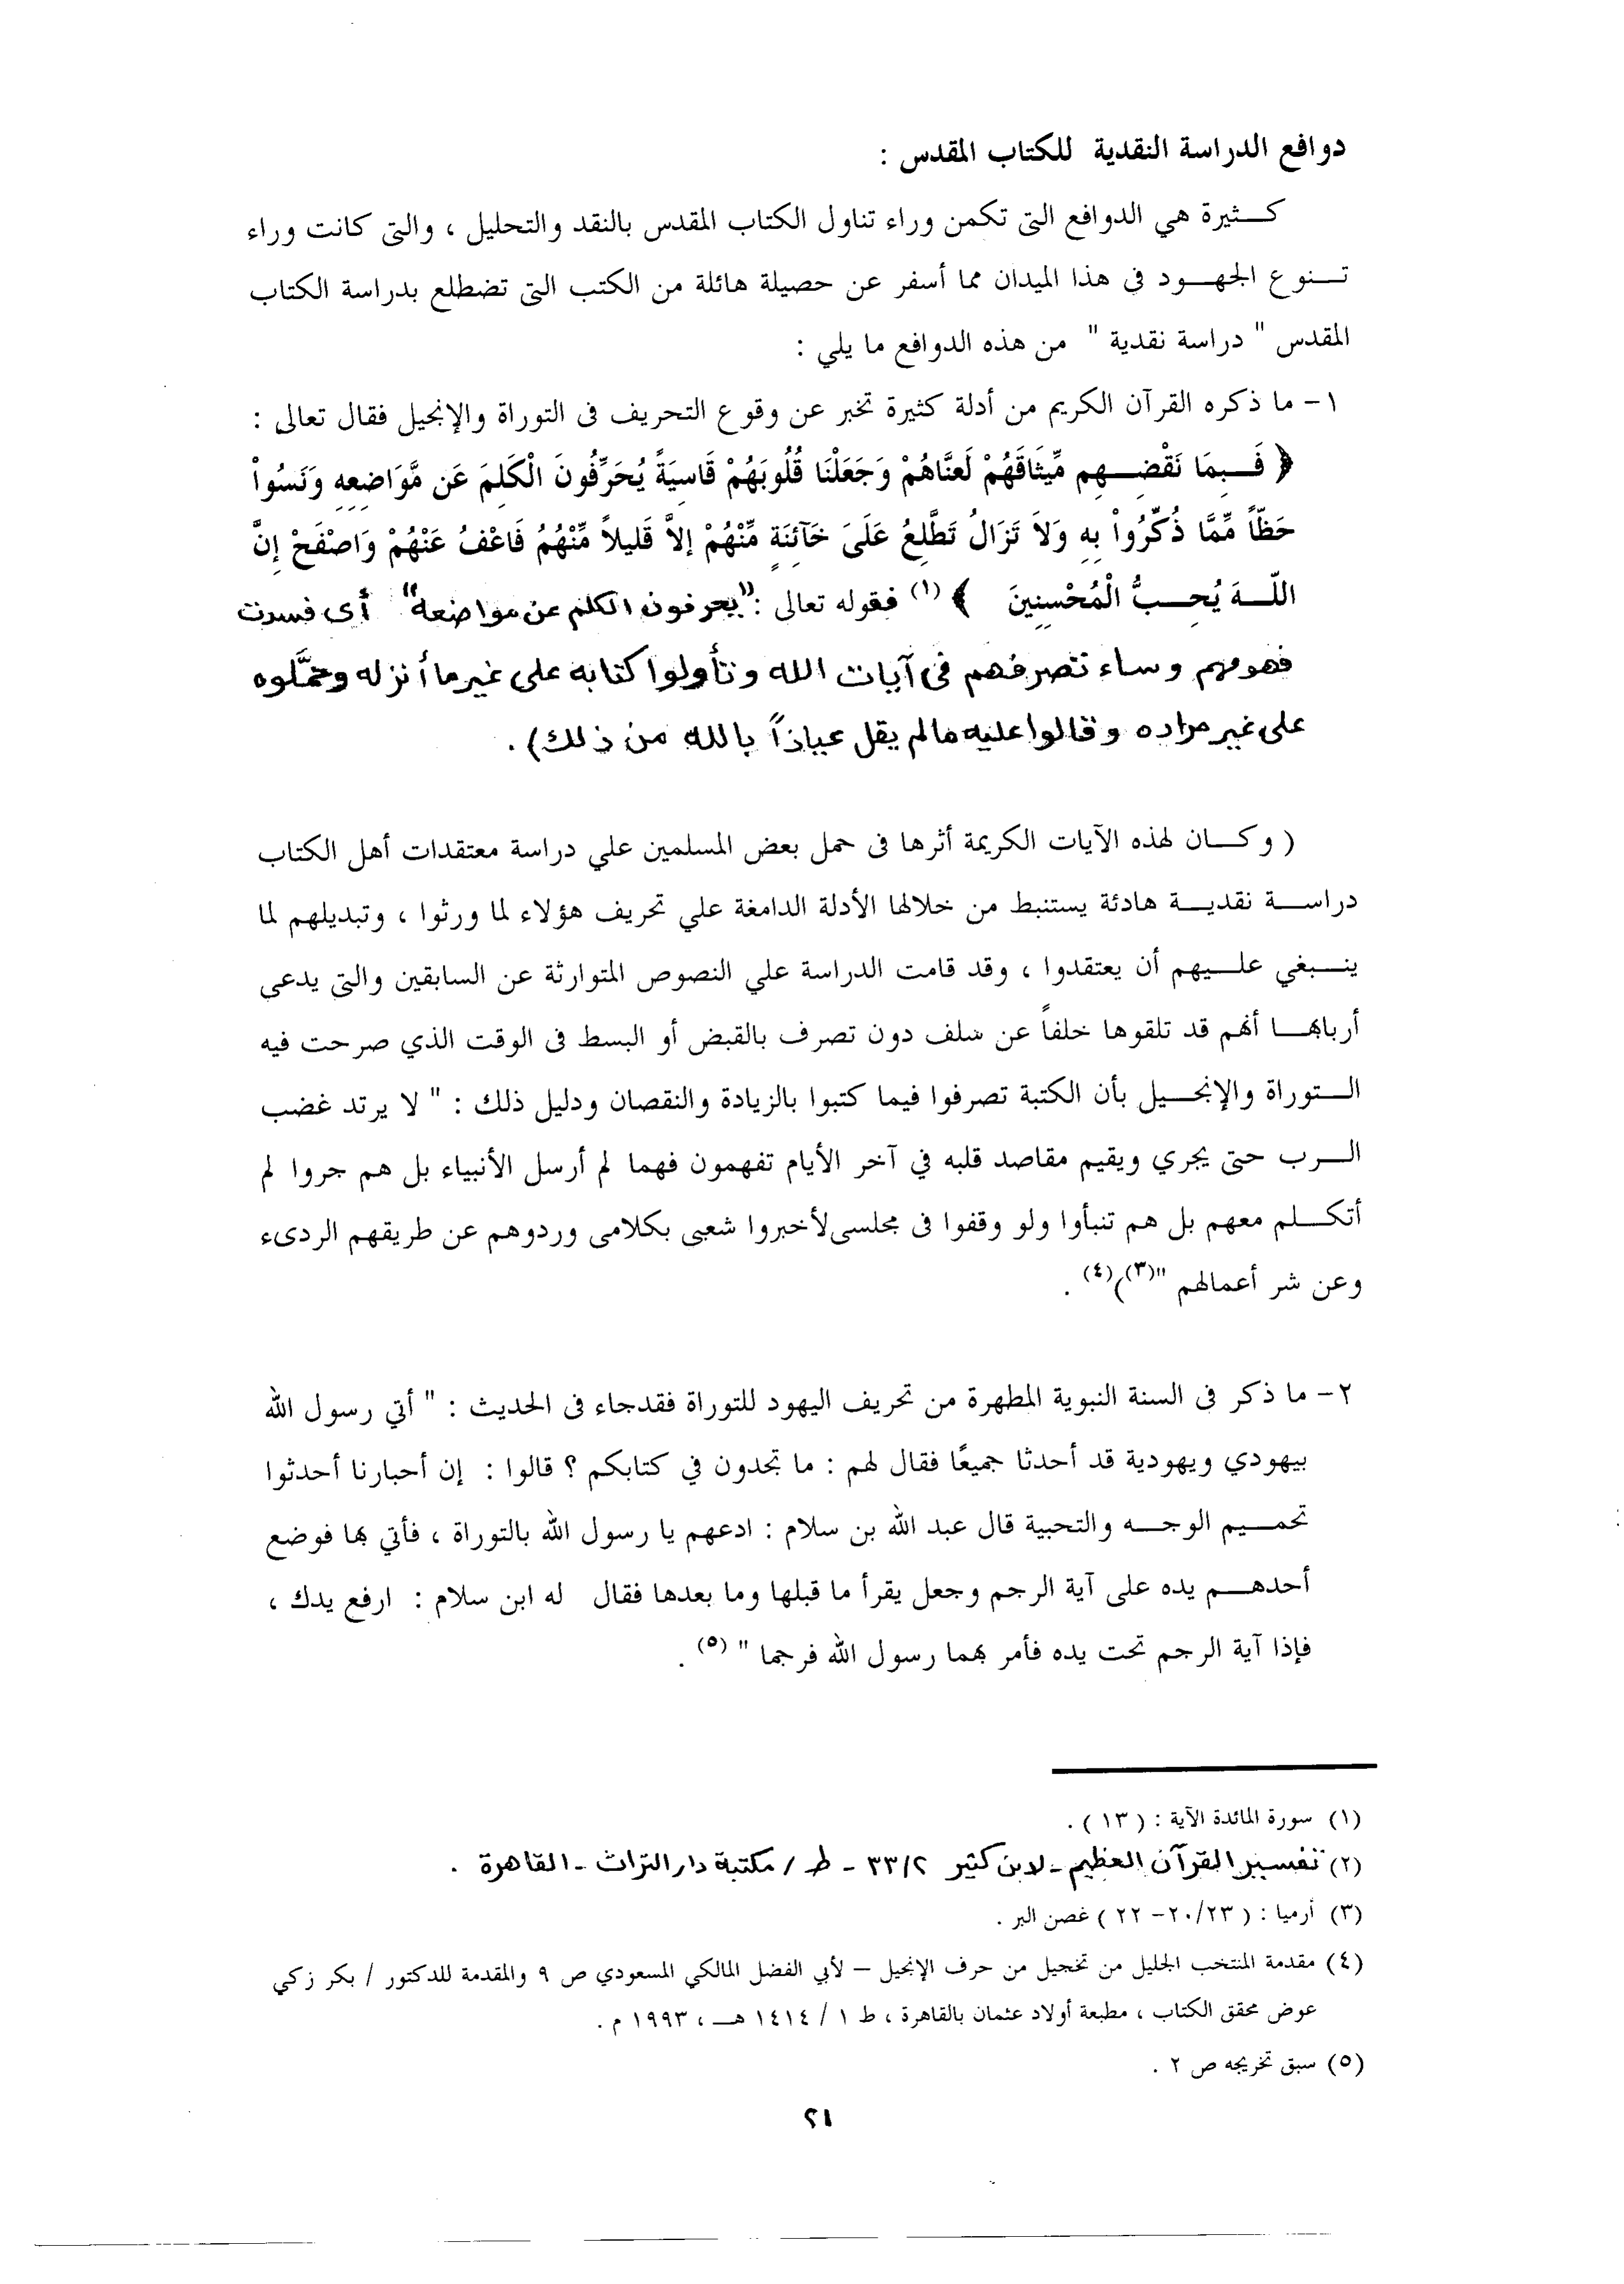 دوافع الدراسة النقدية للكتاب المقدس :
كـــثيرة هي الدوافع التى تكمن وراء تناول الكتاب المقدس بالنقد والتحليل ، والتى كانت وراء
تـــنوع الجهـــود فى هذا الميدان مما أسفر عن حصيلة هائلة من الكتب التى تضطلع بدراسة الكتاب
المقدس " دراسة نقدية " من هذه الدوافع ما يلي :
١- ما ذكره القرآن الكريم من أدلة كثيرة تخبر عن وقوع التحريف فى التوراة والإنجيل فقال تعالى :
﴿ فَـــبِمَا نَقْضِـــهِم مِّيثَاقَهُمْ لَعنَّاهُمْ وَجَعَلْنَا قُلُوبَهُمْ قَاسِيَةً يُحَرِّفُونَ الْكَلِمَ عَن مَّوَاضِعِهِ وَنَسُواْ
حَظّاً مِّمَّا ذُكِّرُواْ بِهِ وَلاَ تَزَالُ تَطَّلِعُ عَلَىَ خَآئِنَةٍ مِّنْهُمْ إِلاَّ قَلِيلاً مِّنْهُمُ فَاعْفُ عَنْهُمْ وَاصْفَحْ إِنَّ
اللّـــهَ يُحِـــبُّ الْمُحْسِنِينَ ﴾ (١) فقوله تعالى : "يحرفون الكلم عن مواضعه" أى فسدت
فهومهم وساء تصرفهم فى آيات الله وتأولوا كتابه على غير ما أنزله وحمَّلوه
على غير مراده وقالوا عليه مالم يقل عياذاً بالله من ذلك) .
( وكـــان لهذه الآيات الكريمة أثرها فى حمل بعض المسلمين علي دراسة معتقدات أهل الكتاب
دراســـة نقديـــة هادئة يستنبط من خلالها الأدلة الدامغة علي تحريف هؤلاء لما ورثوا ، وتبديلهم لما
ينـــبغي علـــيهم أن يعتقدوا ، وقد قامت الدراسة علي النصوص المتوارثة عن السابقين والتى يدعى
أربابهـــا أنهم قد تلقوها خلفاً عن سلف دون تصرف بالقبض أو البسط فى الوقت الذي صرحت فيه
الـــتوراة والإنجـــيل بأن الكتبة تصرفوا فيما كتبوا بالزيادة والنقصان ودليل ذلك : " لا يرتد غضب
الـــرب حتى يجري ويقيم مقاصد قلبه في آخر الأيام تفهمون فهما لم أرسل الأنبياء بل هم جروا لم
أتكـــلم معهم بل هم تنبأوا ولو وقفوا فى مجلسى لأخبروا شعبى بكلامى وردوهم عن طريقهم الردىء
وعن شر أعمالهم "(٣))(٤) .
٢- ما ذكر فى السنة النبوية المطهرة من تحريف اليهود للتوراة فقدجاء فى الحديث : " أتي رسول الله
بيهودي ويهودية قد أحدثا جميعًا فقال لهم : ما تجدون في كتابكم ؟ قالوا : إن أحبارنا أحدثوا
تحمـــيم الوجـــه والتحبية قال عبد الله بن سلام : ادعهم يا رسول الله بالتوراة ، فأتي بها فوضع
أحدهـــم يده على آية الرجم وجعل يقرأ ما قبلها وما بعدها فقال له ابن سلام : ارفع يدك ،
فإذا آية الرجم تحت يده فأمر بهما رسول الله فرجما " (٥) .
(١) سورة المائدة الآية : ( ١٣ ) .
(٢) تفسير القرآن العظيم - لابن كثير ٣٣/٢ - ط / مكتبة دار التراث - القاهرة .
(٣) أرميا : ( ٢٠/٢٣- ٢٢ ) غصن البر .
(٤) مقدمة المنتخب الجليل من تخجيل من حرف الإنجيل – لأبي الفضل المالكي المسعودي ص ٩ والمقدمة للدكتور / بكر زكي
عوض محقق الكتاب ، مطبعة أولاد عثمان بالقاهرة ، ط ١ / ١٤١٤ هـــ ، ١٩٩٣ م .
(٥) سبق تخريجه ص ٢ .
٢١